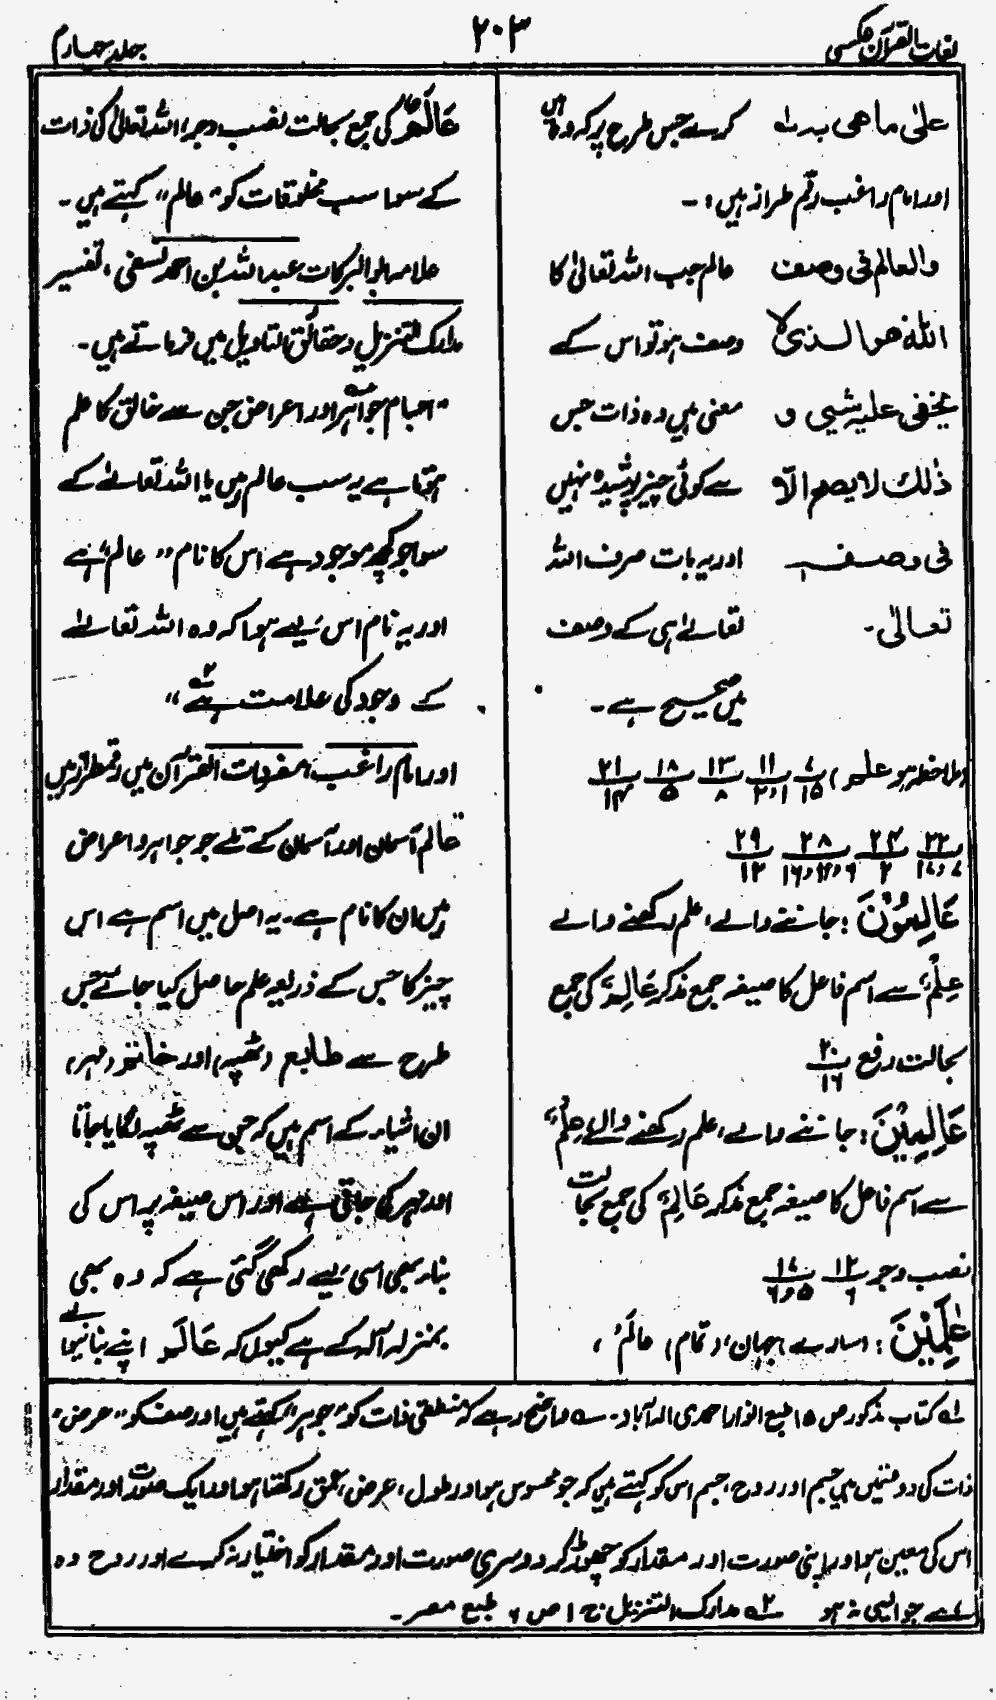 لغات القرآن عکسی
۲۰۳
جلد چہارم
علیٰ ماھی بہ لہ کرے جس طرح پر کہ وہ ہیں
اور امام راغب رقم طراز ہیں :۔
والعالم فی وصف عالم جب اللہ تعالیٰ کا
اللہ ھو الذی لا وصف ہو تو اس کے
یخفی علیہ شیئ و معنی ہیں وہ ذات جس
ذٰلک لا یصح الّا سے کوئی چیز پوشیدہ نہیں
فی وصفہ اور یہ بات صرف اللہ
تعالیٰ۔ تعالےٰ ہی کے وصف
میں صحیح ہے۔
(ملاحظہ ہو علم) ۷/۱۵ ۱۱/۱،۲ ۱۳/۸ ۱۸/۵ ۲۱/۱۴
۲۲/۷،۱۷ ۲۴/۲ ۲۸/۶،۱۱،۱۶ ۲۹/۱۲
عَالِمُوْنَ : جاننے والے، علم رکھنے والے
عِلْمٌ سے اسم فاعل کا صیغہ جمع مذکر عَالِمٌ کی جمع
بحالت رفع ۲۰/۱۶
عَالِمِیْنَ : جاننے والے، علم رکھنے والے عِلْمٌ
سے اسم فاعل کا صیغہ جمع مذکر عَالِمٌ کی جمع بحالت
نصب و جر ۱۲/۶ ۱۷/۵،۶
عٰلَمِیْنَ : (سارے) جہان، (تمام) عالَمْ،
عَالَمٌ کی جمع بحالت نصب وجر، اللہ تعالیٰ کی ذات
کے سوا سب مخلوقات کو "عالم" کہتے ہیں ۔
علامہ ابو البرکات عبداللہ بن احمد نسفی، تفسیر
مدارک التنزیل و حقائق التاویل میں فرماتے ہیں ۔
"اجسام جواہر اور اعراض جن سے خالق کا علم
ہوتا ہے یہ سب عالم ہیں یا اللہ تعالےٰ کے
سوا جو کچھ موجود ہے اس کا نام "عالم" ہے
اور یہ نام اس لیے ہوا کہ وہ اللہ تعالےٰ
کے وجود کی علامت ہے ۲؎"
اور امام راغب، مفردات القرآن میں رقمطراز ہیں
عالم آسمان اور آسمان کے تلے جو جواہر و اعراض
ہیں ان کا نام ہے۔ یہ اصل میں اسم ہے اس
چیز کا جس کے ذریعہ علم حاصل کیا جائے جس
طرح سے طابع (ٹھپہ) اور خاتم (مہر)
ان اشیاء کے اسم ہیں کہ جن سے ٹھپہ لگایا جاتا
اور مہر کی جاتی ہے اور اس صیغہ پر اس کی
بناء بھی اسی لیے رکھی گئی ہے کہ وہ بھی
بمنزلہ آلہ کے ہے کیوں کہ عَالَم اپنے بنانیوالے
۱؎ کتاب مذکور ص ۱۵ طبع انوار احمدی الہ آباد۔ ؎ واضح رہے کہ منطقی ذات کو "جوہر" کہتے ہیں اور صفت کو "عرض"
ذات کی دو قسمیں ہیں جسم اور روح، جسم اس کو کہتے ہیں کہ جو محسوس ہو اور طول، عرض، عمق رکھتا ہو اور ایک صورت اور مقدار
اس کی معین ہو اور اپنی صورت اور مقدار کو چھوڑ کر دوسری صورت اور مقدار کو اختیار نہ کرے اور روح وہ
ہے جو ایسی نہ ہو ۲؎ مدارک التنزیل ج ۱ ص ۶ طبع مصر۔